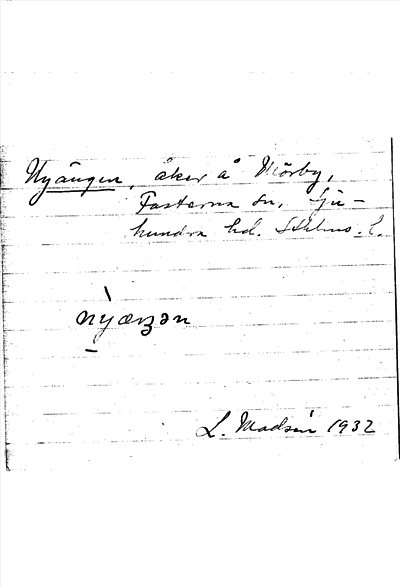 Nyängen, åker å Mörby,
Fasterna sn, Sju-
hundra hd. Sthlms. l.
L. Madsén 1932